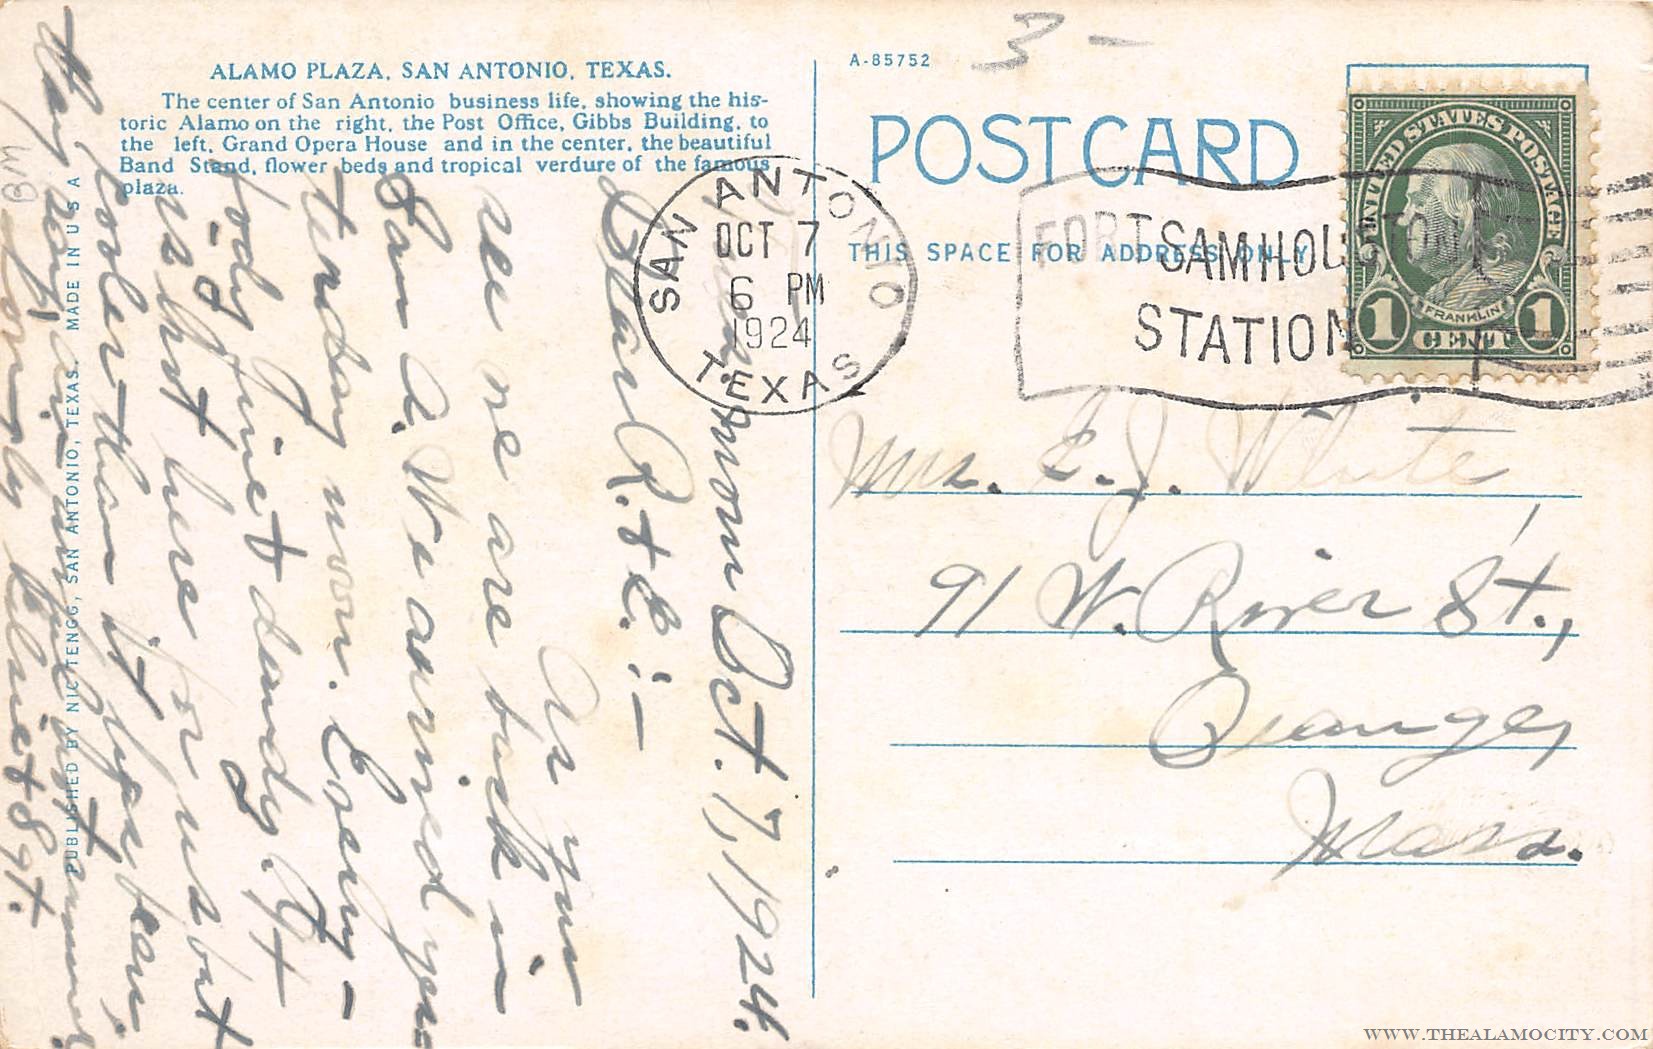 ALAMO PLAZA, SAN ANTONIO, TEXAS.
The center of San Antonio business life, showing the his-
toric Alamo on the right, the Post Office, Gibbs Building, to
the left, Grand Opera House and in the center, the beautiful
Band Stand, flower beds and tropical verdure of the famous
plaza.
PUBLISHED BY NIC TENGG, SAN ANTONIO, TEXAS. MADE IN U S A
A-85752
3 -
POST CARD
THIS SPACE FOR ADDRESS ONLY
SAN ANTONIO
OCT 7
6 PM
1924
TEXAS
FORT SAM HOUSTON
STATION
UNITED STATES POSTAGE
FRANKLIN
1 CENT 1
Mrs. E. J. White,
91 W. River St.,
Orange,
Mass.
Oct. 7, 1924.
Dear R. & E.: -
As you
see we are back in
San A. We arrived yes-
terday noon. Every-
body fine & dandy. It
is hot here for us but
cooler than it has been,
they say.
WWW.THEALAMOCITY.COM